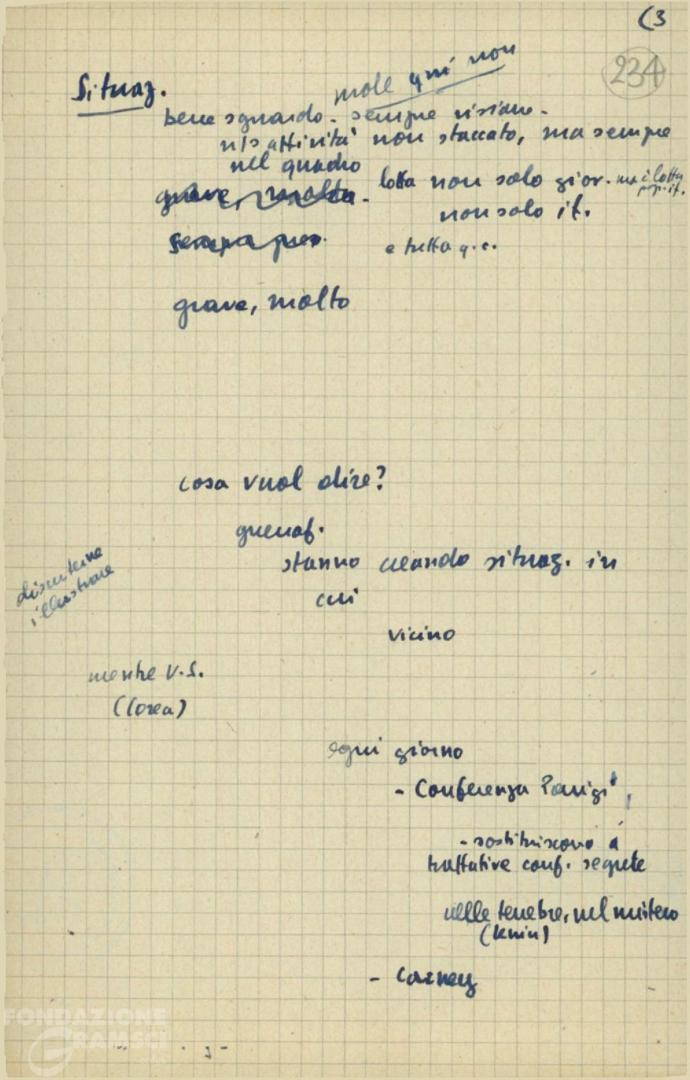 (3
234
Situaz.
male qui non
bene sguardo - sempre visione -
n/s attività non staccato, ma sempre
nel quadro
grave, molto - lotta non solo gior. ma è lotta
pop. it.
non solo it.
e tutta q.c.
grave, molto
cosa vuol dire?
guerraf.
stanno creando situaz. in
cui
vicino
discuterne
illustrare
mentre U.S.
(Corea)
ogni giorno
- Conferenza Parigi
- sostituiscono a
trattative conf. segrete
nelle tenebre, nel mistero
- Carney
FONDAZIONE
GRAMSCI